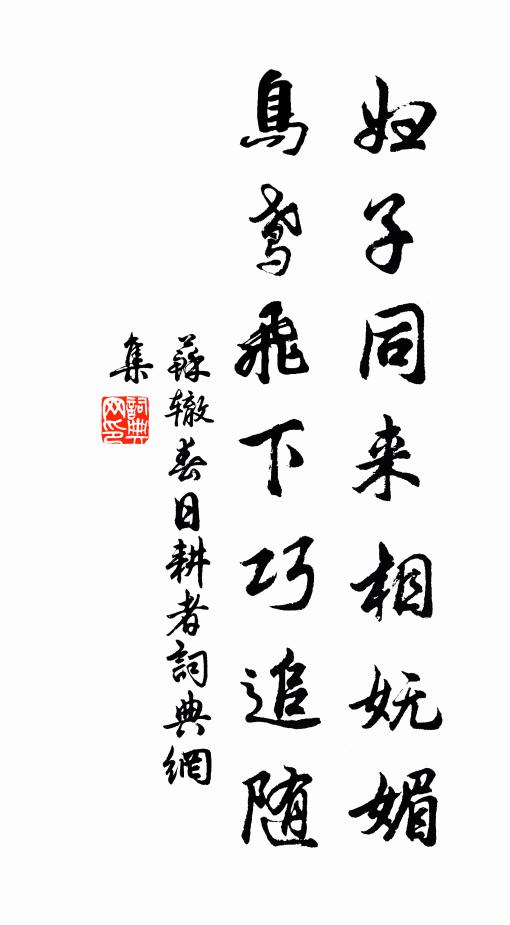 妇子同来相妩媚
鸟鸢飞下巧追随
蘇辙春日耕者詞典網
集
詞典
网印